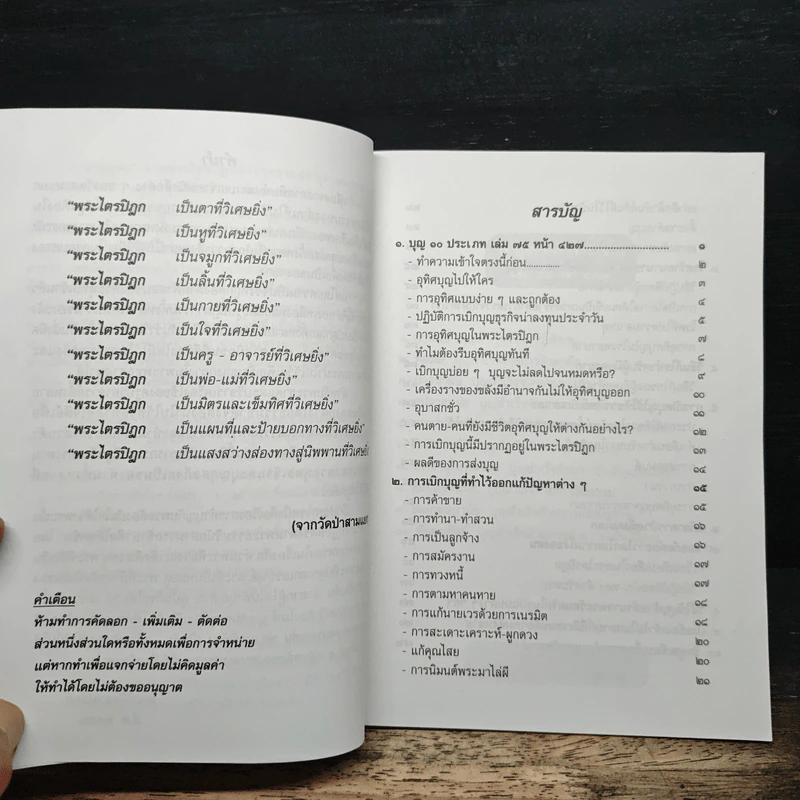 "พระไตรปิฎก เป็นตาที่วิเศษยิ่ง"
"พระไตรปิฎก เป็นหูที่วิเศษยิ่ง"
"พระไตรปิฎก เป็นจมูกที่วิเศษยิ่ง"
"พระไตรปิฎก เป็นลิ้นที่วิเศษยิ่ง"
"พระไตรปิฎก เป็นกายที่วิเศษยิ่ง"
"พระไตรปิฎก เป็นใจที่วิเศษยิ่ง"
"พระไตรปิฎก เป็นครู - อาจารย์ที่วิเศษยิ่ง"
"พระไตรปิฎก เป็นพ่อ-แม่ที่วิเศษยิ่ง"
"พระไตรปิฎก เป็นมิตรและเข็มทิศที่วิเศษยิ่ง"
"พระไตรปิฎก เป็นแผนที่และป้ายบอกทางที่วิเศษยิ่ง"
"พระไตรปิฎก เป็นแสงสว่างส่องทางสู่นิพพานที่วิเศษยิ่ง
(จากวัดป่าสามแยก
คำเตือน
ห้ามทำการคัดลอก - เพิ่มเติม - ตัดต่อ
ส่วนหนึ่งส่วนใดหรือทั้งหมดเพื่อการจำหน่าย
แต่หากทำเพื่อแจกจ่ายโดยไม่คิดมูลค่า
ให้ทำได้โดยไม่ต้องขออนุญาต
สารบัญ
๑. บุญ ๑๐ ประเภท เล่ม ๗๕ หน้า ๔๒๗............................ ๑
- ทำความเข้าใจตรงนี้ก่อน............. ๒
- อุทิศบุญไปให้ใคร ๓
- การอุทิศแบบง่าย ๆ และถูกต้อง ๔
- ปฏิบัติการเบิกบุญธุรกิจน่าลงทุนประจำวัน ๕
- การอุทิศบุญในพระไตรปิฎก ๗
- ทำไมต้องรีบอุทิศบุญทันที ๘
- เบิกบุญบ่อย ๆ บุญจะไม่ลดไปจนหมดหรือ? ๙
- เครื่องรางของขลังมีอำนาจกันไม่ให้อุทิศบุญออก ๑๐
- อุบาสกชั่ว ๑๑
- คนตาย-คนที่ยังมีชีวิตอุทิศบุญให้ต่างกันอย่างไร? ๑๒
- การเบิกบุญนี้มีปรากฏอยู่ในพระไตรปิฎก ๑๓
- ผลดีของการส่งบุญ ๑๔
๒. การเบิกบุญที่ทำไว้ออกแก้ปัญหาต่าง ๆ ๑๕
- การค้าขาย ๑๕
- การทำนา-ทำสวน ๑๖
- การเป็นลูกจ้าง ๑๖
- การสมัครงาน ๑๗
- การทวงหนี้ ๑๗
- การตามหาคนหาย ๑๘
- การแก้นายเวรด้วยการเนรมิต ๑๘
- การสะเดาะเคราะห์-ผูกดวง ๒๐
- แก้คุณไสย ๒๐
- การนิมนต์พระมาไล่ผี ๒๑